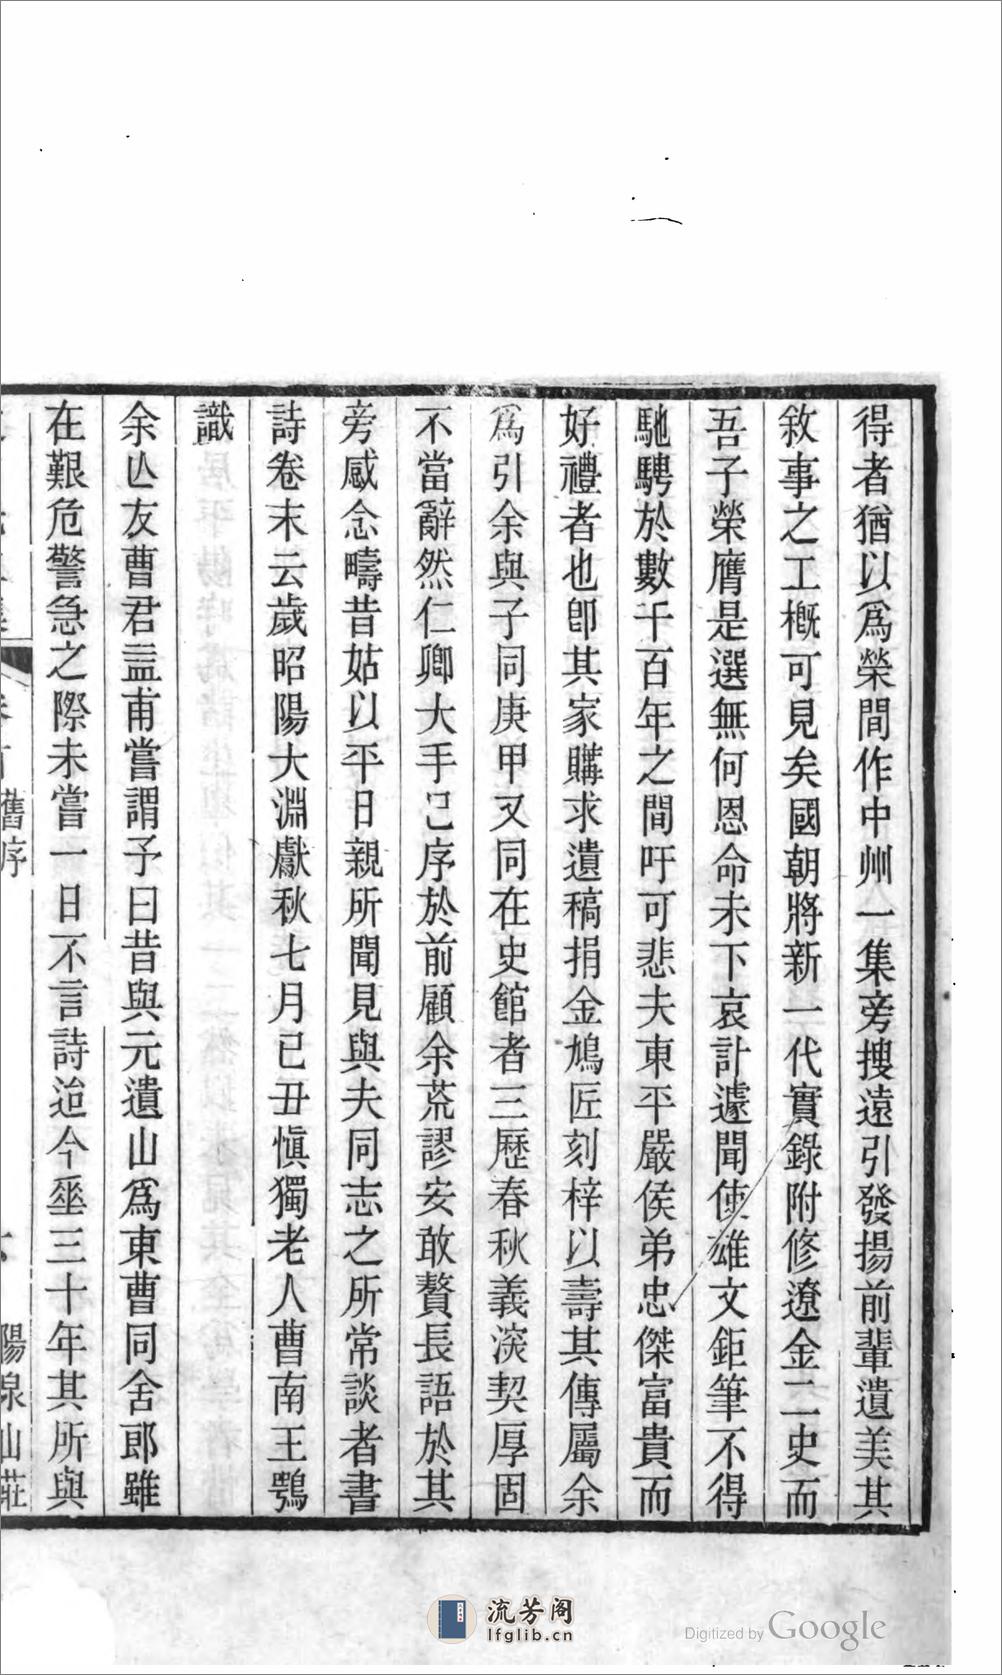 得者猶以爲榮間作中州一集旁搜遠引發揚前輩遺美其
敘事之工槪可見矣國朝將新一代實錄附修遼金二史而
吾子榮膺是選無何恩命未下哀訃遽聞使雄文鉅筆不得
馳騁於數千百年之間吁可悲夫東平嚴侯弟忠傑富貴而
好禮者也卽其家購求遺稿捐金鳩匠刻梓以壽其傳屬余
爲引余與子同庚甲又同在史館者三歷春秋義深契厚固
不當辭然仁卿大手已序於前顧余荒謬安敢贅長語於其
旁感念疇昔姑以平日親所聞見與夫同志之所常談者書
詩卷末云歲昭陽大淵獻秋七月已丑愼獨老人曹南王鶚
識
余亾友曹君益甫嘗謂予曰昔與元遺山爲東曹同舍郎雖
在艱危警急之際未嘗一日不言詩迨今垂三十年其所與
舊序
陽泉山莊
流芳阁
lfglib.cn
Digitized by Google